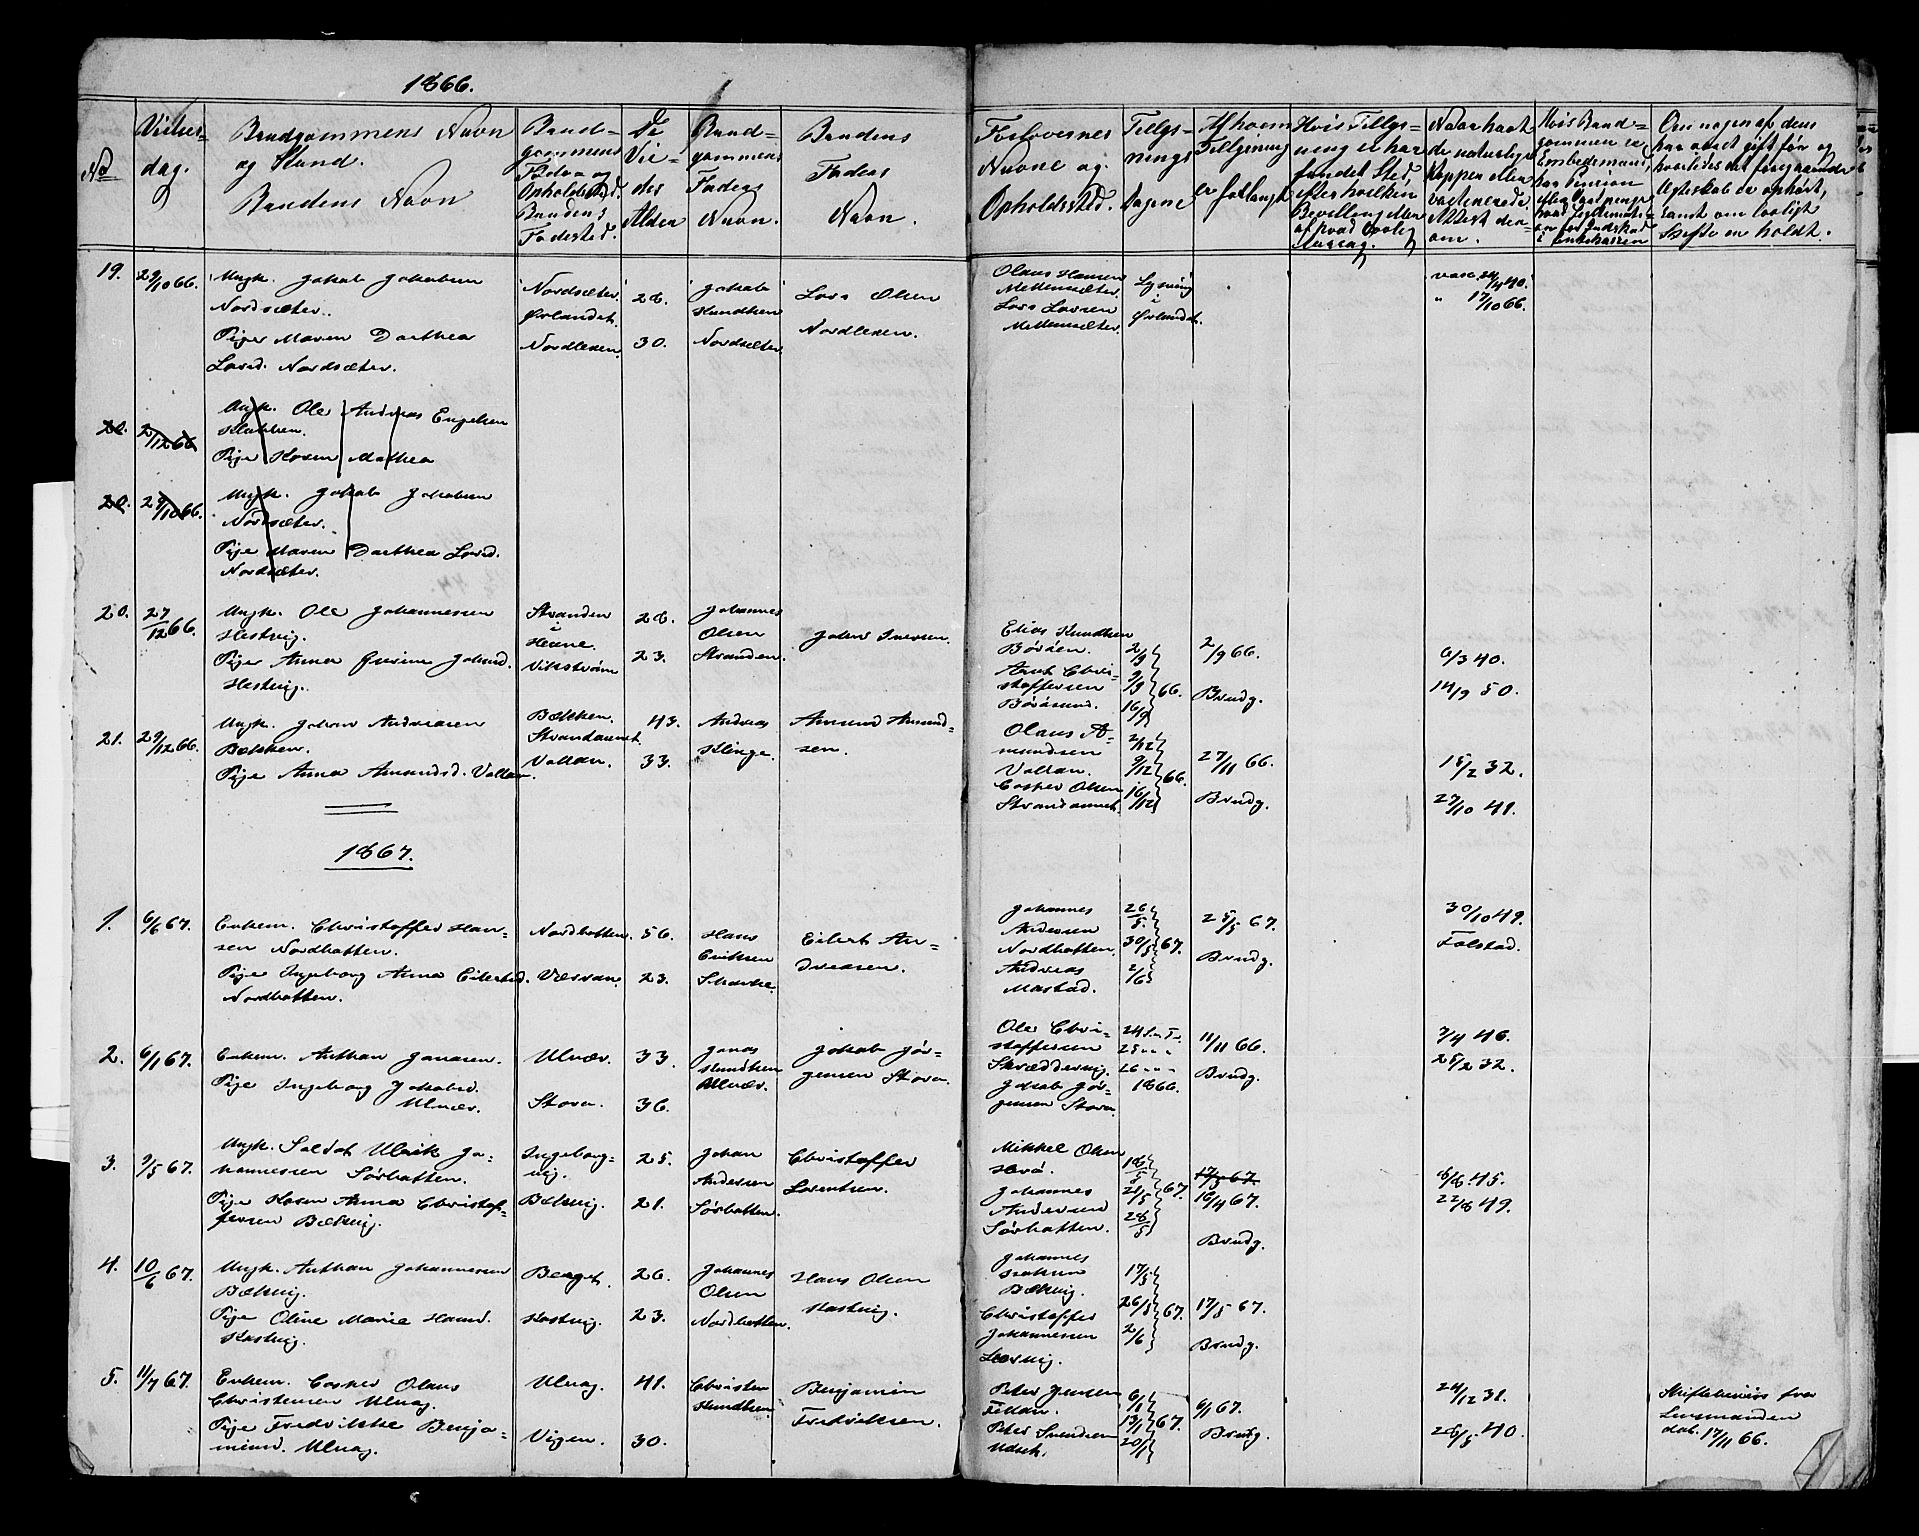 1866.
No
Vielses-
dag.
Brudgommens Navn
og Stand.
Brudens Navn
Brud-
gommens
Føde- og
Opholdssted.
Brudens
Fødested.
De
Vie-
des
Alder
Brud-
gommens
Faders
Navn.
Brudens
Faders
Navn.
Forlovernes
Navne og
Opholdssted.
Tillys-
nings
Dagene
Af hvem
Tillysning
er forlangt
Hvis Tillys-
ning ei har
fundet Sted,
efter hvilken
Bevilling eller
af hvad lovlig
Aarsag.
Naar havt
de naturlige
Kopper eller
vaccinerede
Attest der-
om.
Hvis Brud-
gommen er
Embedsmand,
Om nogen af dem
har været gift før og
hvorledes det foregaaende
Ægteskab er ophørt,
samt om lovligt
Skifte er holdt.
19. 29/10 66. Ungk. Jakob Jakobsen
Nordsæter.
Pige Maren Dorthea
Larsd. Nordsæter.
Nordsæter
Ørlandet.
Nordlexen.
28.
30.
Jakob
Knudsen
Nordsæter
Lars Olsen
Nordlexen.
Olaus Hansen
Mellemsæter.
Lars Larsen
Mellemsæter.
Lysning
i
Ørlandet.
vacc. 24/4 40.
" 17/10 66.
20. 2/12 66 Ungk. Ole Andreas Engelsen
Klakken.
Pige Karen Mathea
20. 29/10 66. Ungk. Jakob Jakobsen
Nordsæter.
Pige Maren Dorthea Larsd.
Nordsæter.
20. 27/12 66. Ungk. Ole Johannessen
Hestvig.
Pige Anna Johnsd.
Hestvig.
Stranden
i
Hevne.
Vikstrøm
28.
23.
Johannes
Olsen
Stranden.
John Iversen.
Elias Knudsen
Børøen.
Arnt Chri-
stoffersen
Børøsund.
2/9
9/9 66.
16/9
2/9 66.
Brudg.
6/3 40.
14/9 50.
21. 29/12 66. Ungk. Johan Andreasen
Bækken.
Pige Anna Amundsd. Valen.
Bækken.
Valan.
43.
33.
Andreas
Klinge.
Amund Amund-
sen.
Olaus A-
mundsen
Valan.
Casper Olsen
2/12
9/12 66.
16/12
27/11 66.
Brudg.
15/2 32.
27/10 41.
1867.
1. 6/6 67. Enkem. Christoffer Han-
sen Nordhatten.
Pige Ingeborg Anna Eilertsd.
Nordhatten.
Nordhatten.
Væsvan.
56.
23.
Hans
Eriksen
Eilert An-
dreasen.
Johannes
Andersen
Nordhatten.
Andreas
Mastad.
26/5.
30/5 67.
2/6
25/5 67.
Brudg.
30/10 49.
Folstad.
2. 6/1 67. Enkem. Anthon Jonasen.
Pige Ingeborg Jakobsd.
Ulvær.
Ulvær.
Storø.
33.
36.
Jonas
Knudsen
Ulvær.
Jakob Jør-
gensen Storø.
Ole Chri-
stoffersen
Skrædervig.
Jakob Jør-
gensen Storø.
24 S. e. Tr.
25 " "
26 " "
1866.
11/11 66.
Brudg.
7/4 46.
25/2 32.
3. 9/5 67. Ungk. Soldat Ulrik Jo-
hannessen Sørhatten.
Pige Karen Anna Christof-
fersen Bækvig.
Ingeborg-
vig.
Bækvig.
25.
21.
Johan
Andersen
Sørhatten.
Christoffer
Lorentsen.
Mikkel Olsen
Johannes
Andersen
Sørhatten.
18/5
21/5 67.
28/5
17/5 67.
16/4 67.
Brudg.
8/8 45.
22/8 49.
4. 10/6 67. Ungk. Anthon Johannessen
Bækvig.
Pige Oline Marie Hansd.
Kastvig.
Berget
Kastvig.
26.
23.
Johannes
Olsen
Nordhatten.
Hans Olsen
Kastvig.
Johannes
Isaksen
Bækvig.
Christoffer
Johannessen
Leervig.
17/5
26/5 67.
2/6
17/5 67.
Brudg.
5. 11/7 67. Enkem. Casper Olaus
Christensen Ulvag.
Pige Fredrikke Benja-
minsd. Ulvag.
Ulvag.
Vigen.
41.
30.
Christen
Knudsen
Benjamin
Fredriksen.
Peter Jensen
Fillan.
Peter Svendsen
Ulvag.
6/1
13/1 67.
20/1
6/1 67.
Brudg.
24/12 31.
28/5 40.
Skiftebevis fra
Lensmanden
dat. 17/11 66.